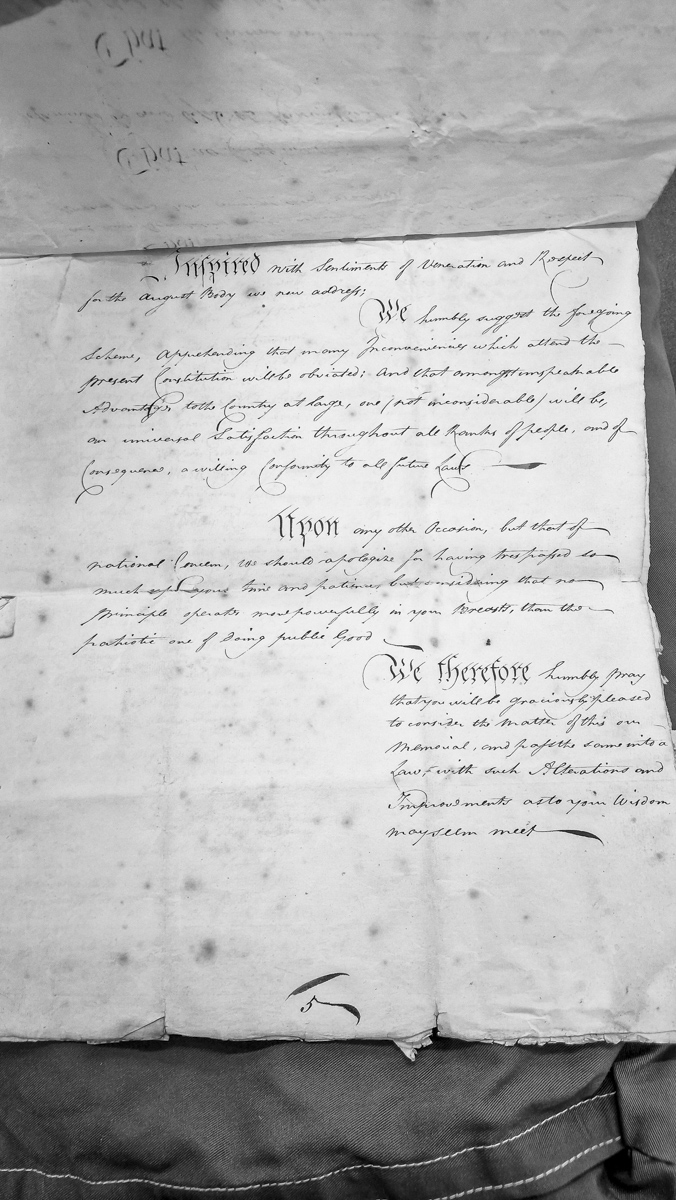 That
That no
Inspired with Sentiments of Veneration and Respect
for the August Body we now address;
We humbly suggest the foregoing
Scheme, Apprehending that many Inconveniencies which attend the
present Constitution will be obviated; And that amongst unspeakable
Advantages to the Country at large, one (not inconsiderable) will be,
an universal Satisfaction throughout all Ranks of people, and of
Consequence, a willing Conformity to all future Laws
Upon any other Occasion, but that of
national Concern, we should apologize for having trespassed so
much upon your time and patience but considering that no
principle operates more powerfully in your Breasts, than the
patriotic one of doing public Good
We therefore humbly pray
that you will be graciously pleased
to consider the Matter of this our
Memorial, and pass the same into a
Law, with such Alterations and
Improvements as to your Wisdom
may seem meet
5